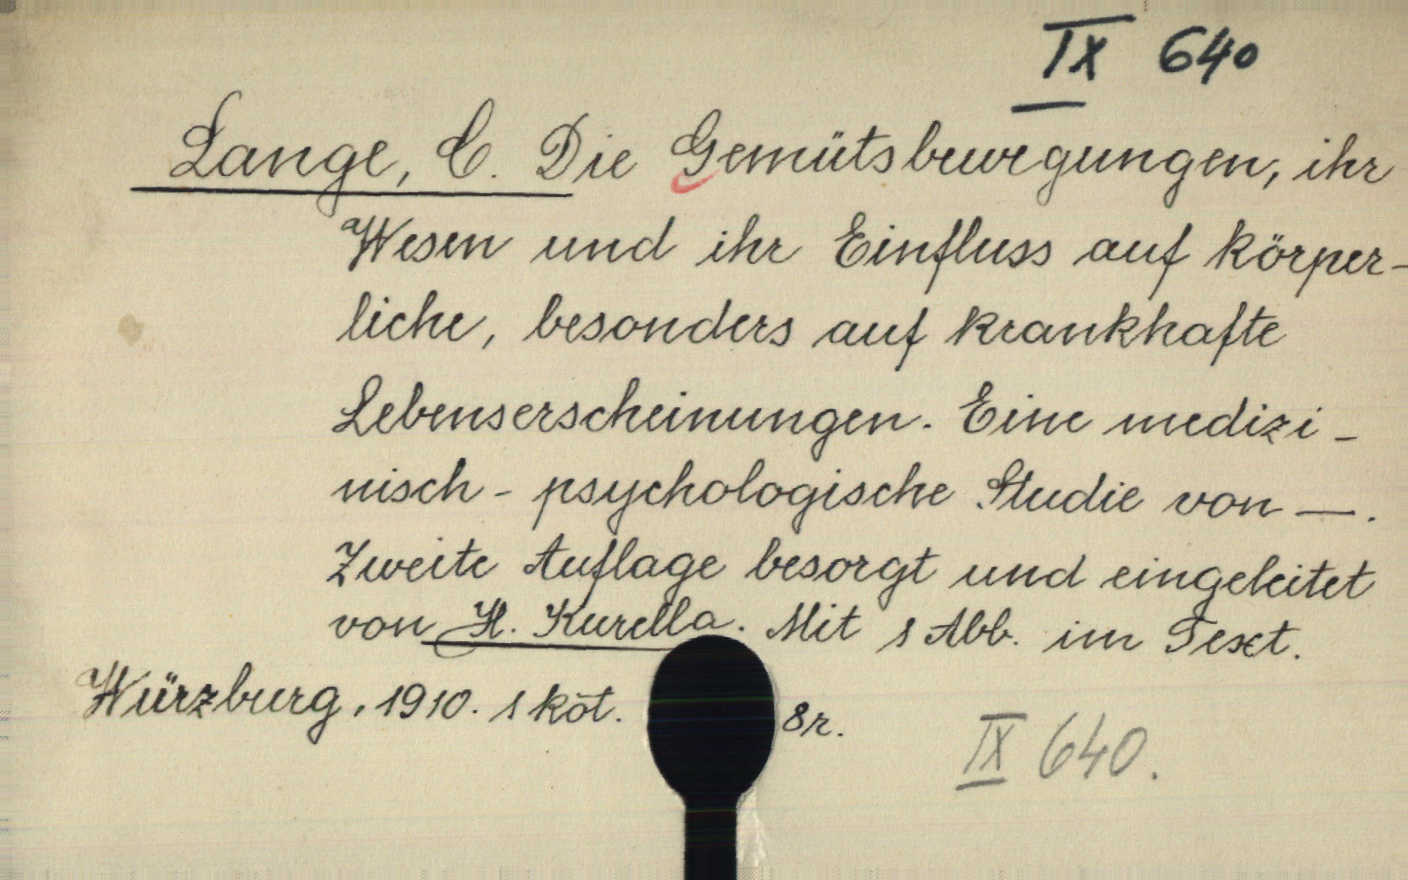 IX 640
Lange, C. Die Gemütsbewegungen, ihr
Wesen und ihr Einfluss auf körper-
liche, besonders auf krankhafte
Lebenserscheinungen. Eine medizi-
nisch-psychologische Studie von —.
Zweite Auflage besorgt und eingeleitet
von H. Kurella. Mit 1 Abb. im Text.
Würzburg, 1910. 1 köt. 8r.
IX 640.